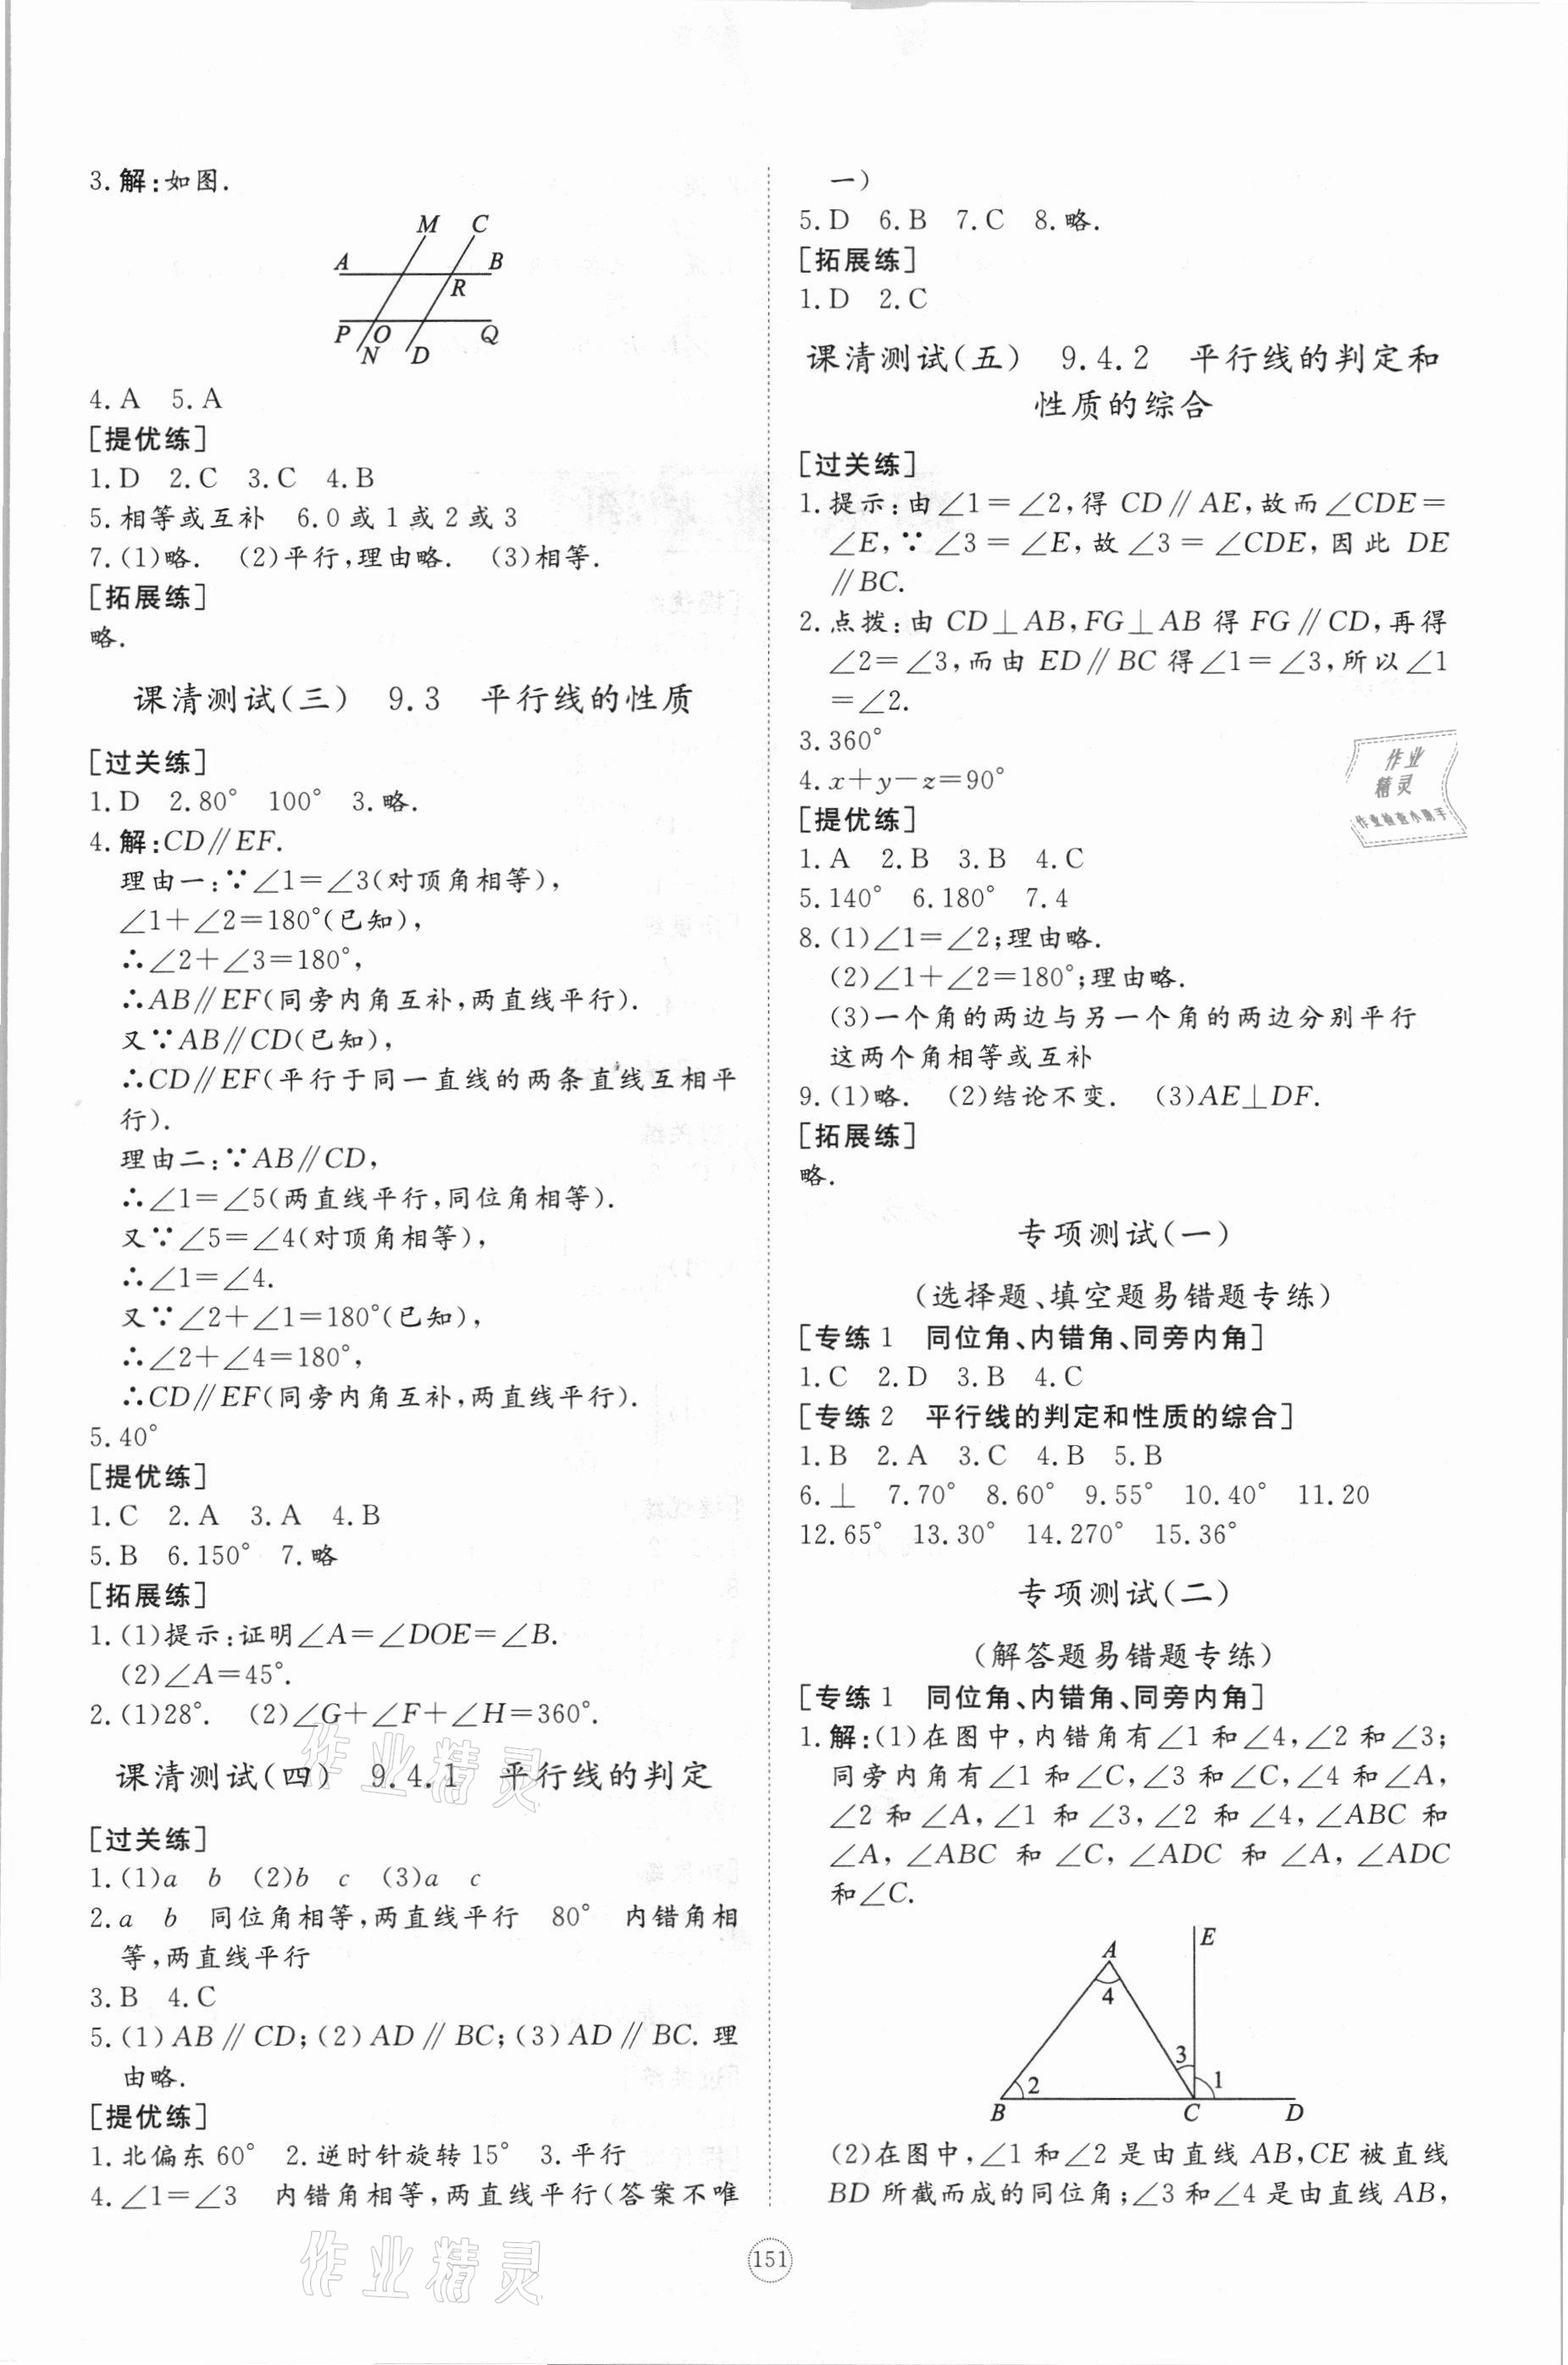 3.解:如图.
M C
A B
R
P O Q
N D
4.A 5.A
[提优练]
1.D 2.C 3.C 4.B
5.相等或互补 6.0或1或2或3
7.(1)略. (2)平行,理由略. (3)相等.
[拓展练]
略.
课清测试(三) 9.3 平行线的性质
[过关练]
1.D 2.80° 100° 3.略.
4.解:CD∥EF.
理由一:∵∠1=∠3(对顶角相等),
∠1+∠2=180°(已知),
∴∠2+∠3=180°,
∴AB∥EF(同旁内角互补,两直线平行).
又∵AB∥CD(已知),
∴CD∥EF(平行于同一直线的两条直线互相平
行).
理由二:∵AB∥CD,
∴∠1=∠5(两直线平行,同位角相等).
又∵∠5=∠4(对顶角相等),
∴∠1=∠4.
又∵∠2+∠1=180°(已知),
∴∠2+∠4=180°,
∴CD∥EF(同旁内角互补,两直线平行).
5.40°
[提优练]
1.C 2.A 3.A 4.B
5.B 6.150° 7.略
[拓展练]
1.(1)提示:证明∠A=∠DOE=∠B.
(2)∠A=45°.
2.(1)28°. (2)∠G+∠F+∠H=360°.
课清测试(四) 9.4.1 平行线的判定
[过关练]
1.(1)a b (2)b c (3)a c
2.a b 同位角相等,两直线平行 80° 内错角相
等,两直线平行
3.B 4.C
5.(1)AB∥CD;(2)AD∥BC;(3)AD∥BC.理
由略.
[提优练]
1.北偏东60° 2.逆时针旋转15° 3.平行
4.∠1=∠3 内错角相等,两直线平行(答案不唯
一)
5.D 6.B 7.C 8.略.
[拓展练]
1.D 2.C
课清测试(五) 9.4.2 平行线的判定和
性质的综合
[过关练]
1.提示:由∠1=∠2,得CD∥AE,故而∠CDE=
∠E,∵∠3=∠E,故∠3=∠CDE,因此DE
∥BC.
2.点拨:由CD⊥AB,FG⊥AB得FG∥CD,再得
∠2=∠3,而由ED∥BC得∠1=∠3,所以∠1
=∠2.
3.360°
4.x+y-z=90°
[提优练]
1.A 2.B 3.B 4.C
5.140° 6.180° 7.4
8.(1)∠1=∠2;理由略.
(2)∠1+∠2=180°;理由略.
(3)一个角的两边与另一个角的两边分别平行
这两个角相等或互补
9.(1)略. (2)结论不变. (3)AE⊥DF.
[拓展练]
略.
专项测试(一)
(选择题、填空题易错题专练)
[专练1 同位角、内错角、同旁内角]
1.C 2.D 3.B 4.C
[专练2 平行线的判定和性质的综合]
1.B 2.A 3.C 4.B 5.B
6.⊥ 7.70° 8.60° 9.55° 10.40° 11.20
12.65° 13.30° 14.270° 15.36°
专项测试(二)
(解答题易错题专练)
[专练1 同位角、内错角、同旁内角]
1.解:(1)在图中,内错角有∠1和∠4,∠2和∠3;
同旁内角有∠1和∠C,∠3和∠C,∠4和∠A,
∠2和∠A,∠1和∠3,∠2和∠4,∠ABC和
∠A,∠ABC和∠C,∠ADC和∠A,∠ADC
和∠C.
E
A
4
3
2 1
B C D
(2)在图中,∠1和∠2是由直线AB,CE被直线
BD所截而成的同位角;∠3和∠4是由直线AB,
151
作业
精灵
作业检查小助手
作业精灵
作业精灵